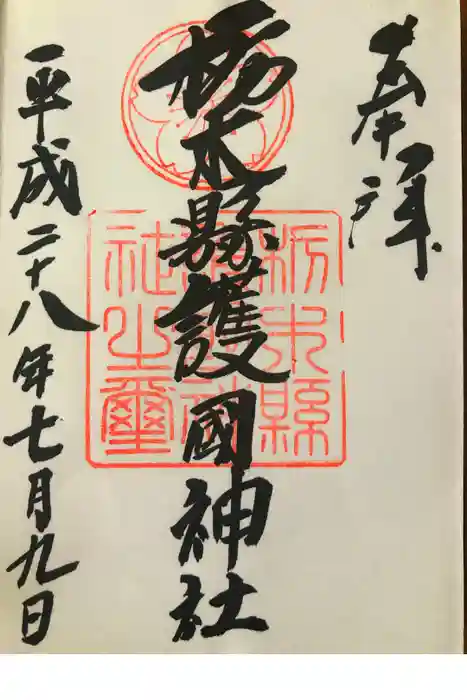 奉拝
栃木縣護國神社
平成二十八年七月九日
栃木縣護國神社之璽